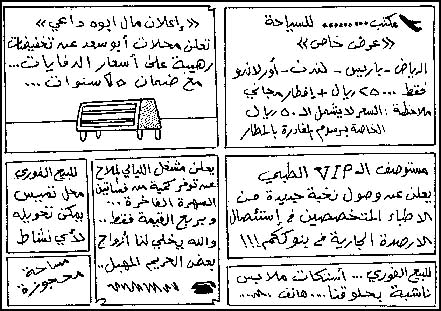 مكتب ......... للسياحة
«عرض خاص»
الرياض - باريس - لندن - أورلاندو
فقط ... ٢٥٠٠ ريال + إفطار مجاني
ملاحظة: السعر لا يشمل الـ ٥٠ ريال
الخاصة برسوم المغادرة بالمطار
«إعلان مال ابوه داعي»
تعلن محلات أبو سعد عن تخفيضات
رهيبة على أسعار الدفايات ...
مع ضمان ٥ سنوات ...
مستوصف الـ VIP الطبي
يعلن عن وصول نخبة جديدة من
الاطباء المتخصصين في إستئصال
الارصدة الجارية في بنوككم!!!
للبيع الفوري ... أستكات ملابس
ناشبة بحلوقنا ... هاتف
يعلن مشغل الليالي الملاح
عن توفر كمية من فساتين
السهرة الفاخرة ...
وبربع القيمة فقط ..
والله يخلي لنا أزواج
بعض الحريم المهبل ..
للبيع الفوري
محل تميس
يمكن تحويله
لأي نشاط
مساحة
محجوزة